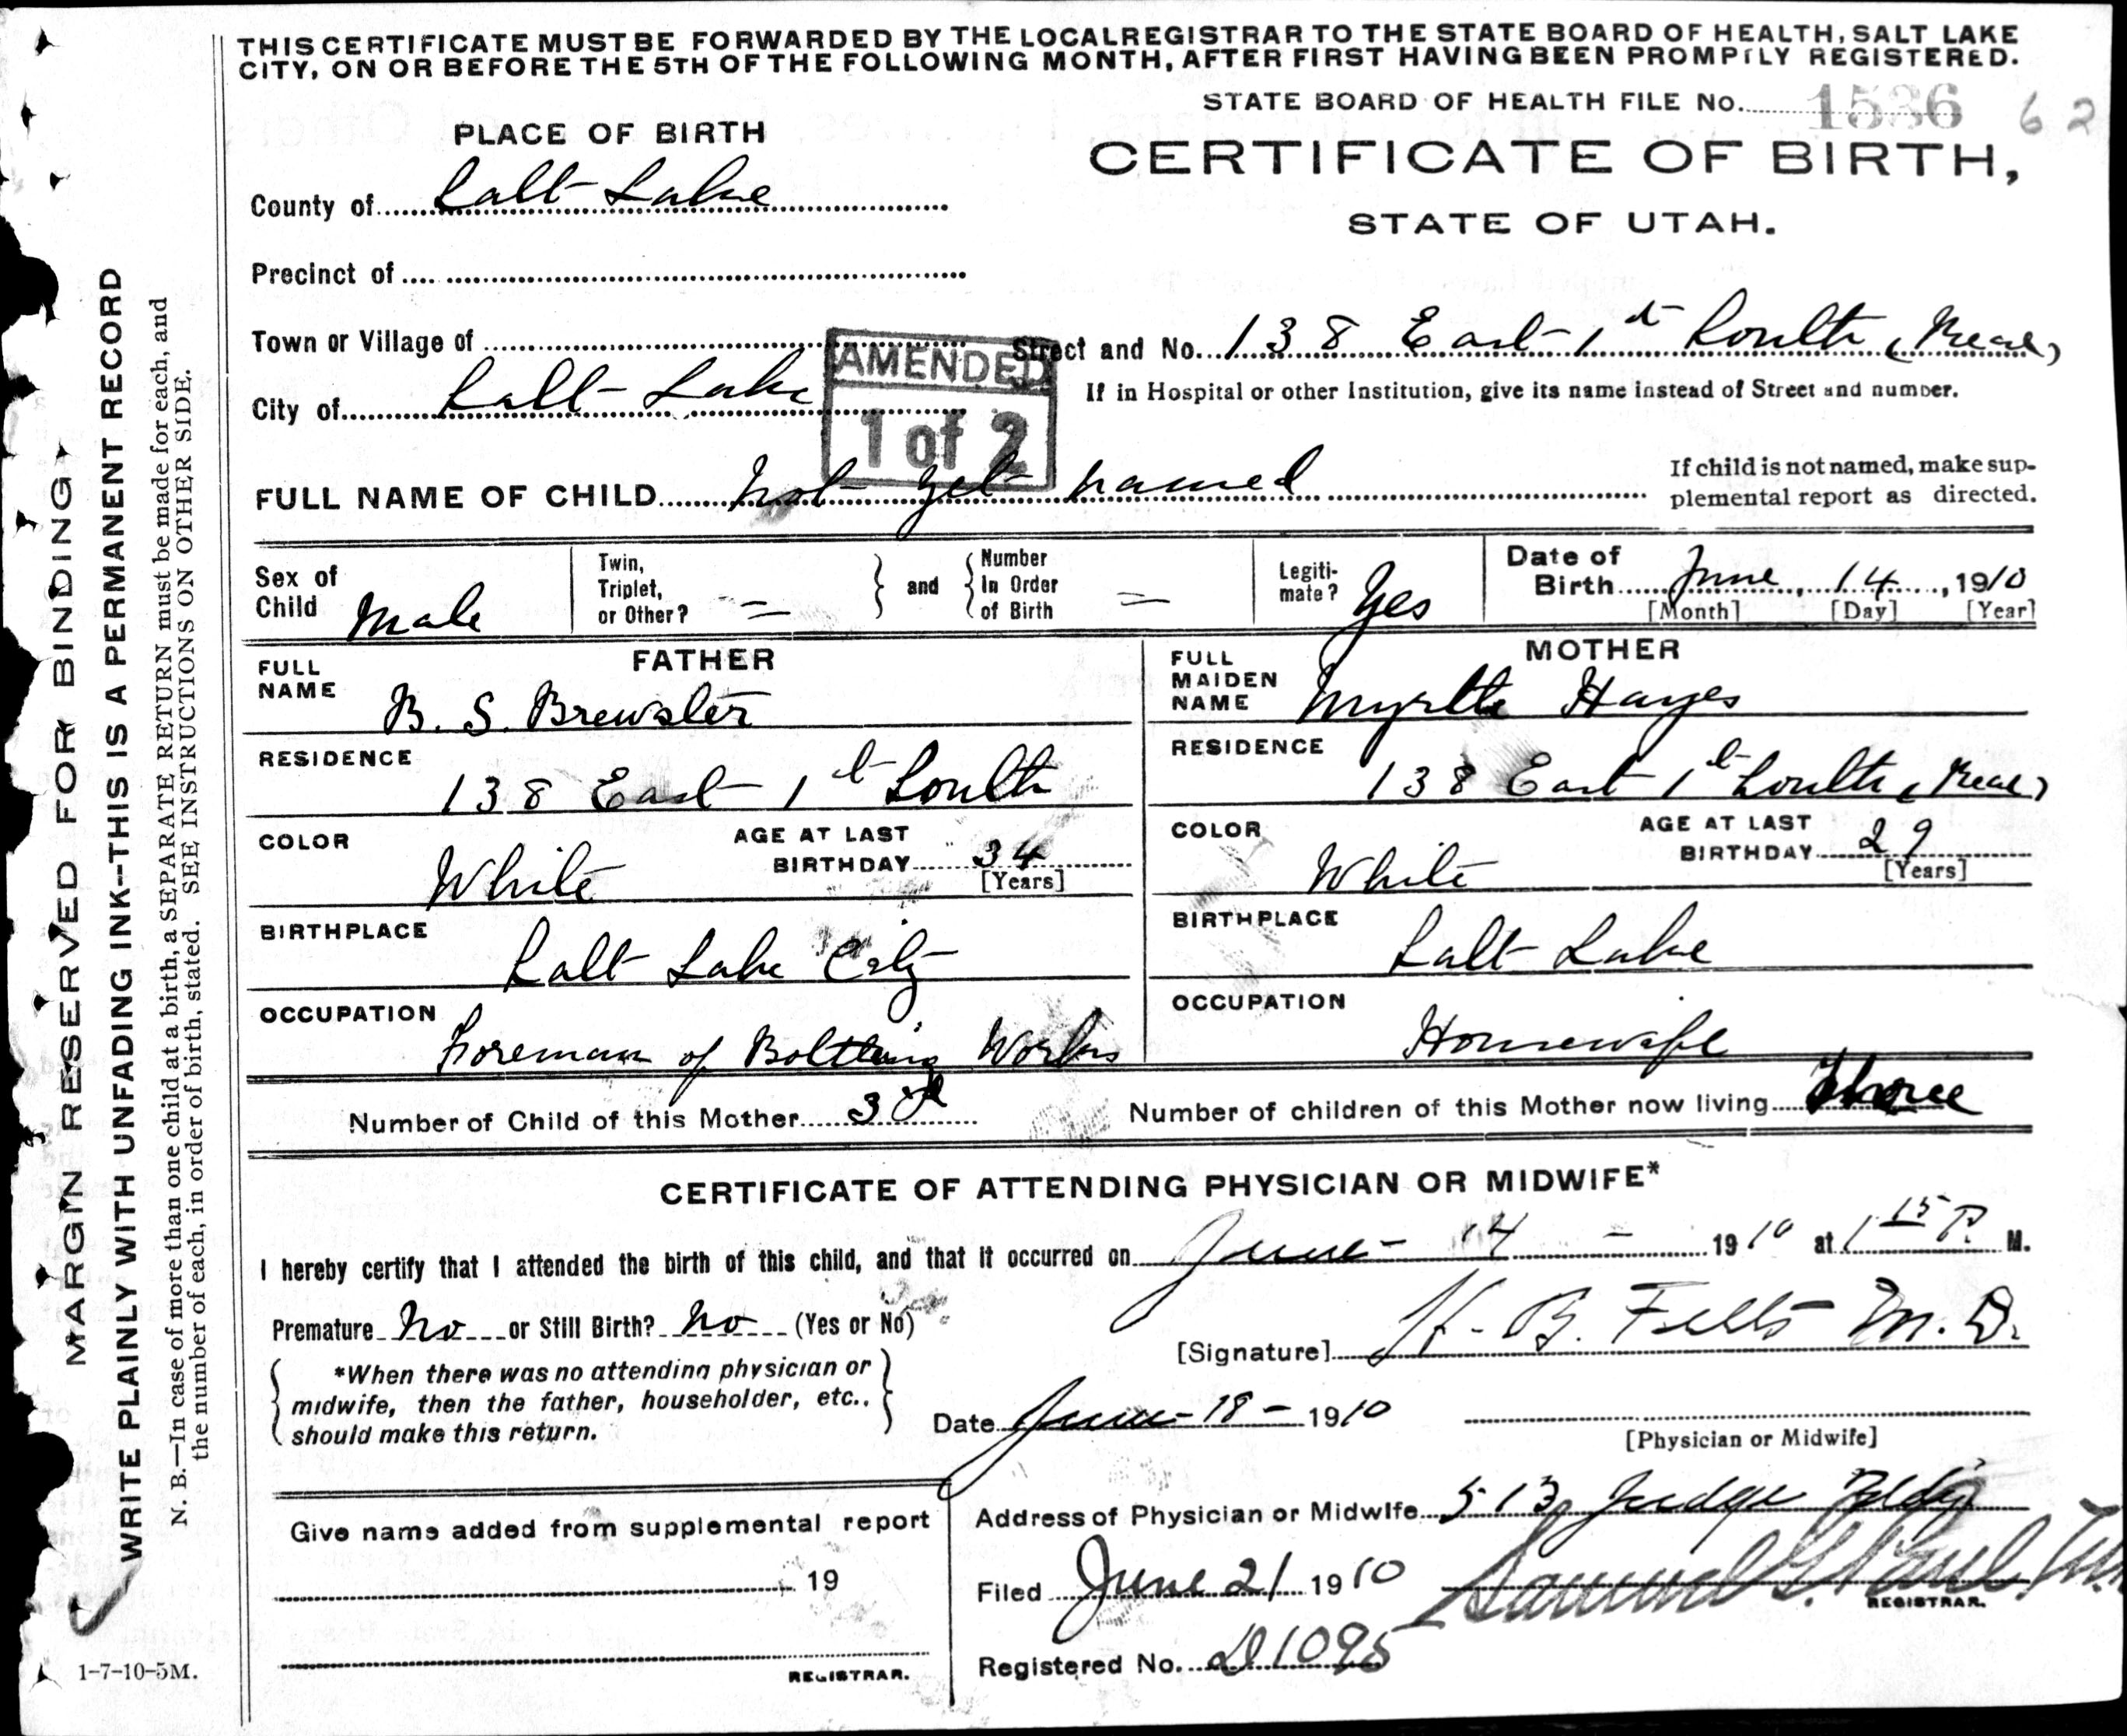 THIS CERTIFICATE MUST BE FORWARDED BY THE LOCAL REGISTRAR TO THE STATE BOARD OF HEALTH, SALT LAKE
CITY, ON OR BEFORE THE 5TH OF THE FOLLOWING MONTH, AFTER FIRST HAVING BEEN PROMPTLY REGISTERED.
STATE BOARD OF HEALTH FILE No. 1536 62
PLACE OF BIRTH
CERTIFICATE OF BIRTH,
STATE OF UTAH.
County of Salt Lake
Precinct of
Town or Village of
Street and No. 138 East 1st South (Rear)
City of Salt Lake
If in Hospital or other Institution, give its name instead of Street and number.
AMENDED
1 of 2
FULL NAME OF CHILD Not yet named
If child is not named, make sup-
plemental report as directed.
Sex of
Child Male
Twin,
Triplet,
or Other? =
and
Number
In Order
of Birth =
Legiti-
mate? Yes
Date of
Birth June, 14, 1910
[Month] [Day] [Year]
FATHER
FULL
NAME B. S. Brewster
RESIDENCE 138 East 1st South
COLOR White
AGE AT LAST
BIRTHDAY 34
[Years]
BIRTHPLACE Salt Lake City
OCCUPATION Foreman of Bottling Works
MOTHER
FULL
MAIDEN
NAME Myrtle Hayes
RESIDENCE 138 East 1st South (Rear)
COLOR White
AGE AT LAST
BIRTHDAY 29
[Years]
BIRTHPLACE Salt Lake
OCCUPATION Housewife
Number of Child of this Mother 3rd
Number of children of this Mother now living Three
CERTIFICATE OF ATTENDING PHYSICIAN OR MIDWIFE*
I hereby certify that I attended the birth of this child, and that it occurred on June 14 1910 at 1 15 P. M.
Premature No or Still Birth? No (Yes or No)
[Signature] H. B. Felts M.D.
*When there was no attending physician or
midwife, then the father, householder, etc.,
should make this return.
Date June 18 1910
[Physician or Midwife]
Address of Physician or Midwife 513 Judge Bldg
Give name added from supplemental report
19
REGISTRAR.
Filed June 21 1910
Samuel G. Paul
REGISTRAR.
Registered No. D1095
MARGIN RESERVED FOR BINDING
WRITE PLAINLY WITH UNFADING INK--THIS IS A PERMANENT RECORD
N. B.—In case of more than one child at a birth, a SEPARATE RETURN must be made for each, and
the number of each, in order of birth, stated. SEE INSTRUCTIONS ON OTHER SIDE.
1-7-10-5M.